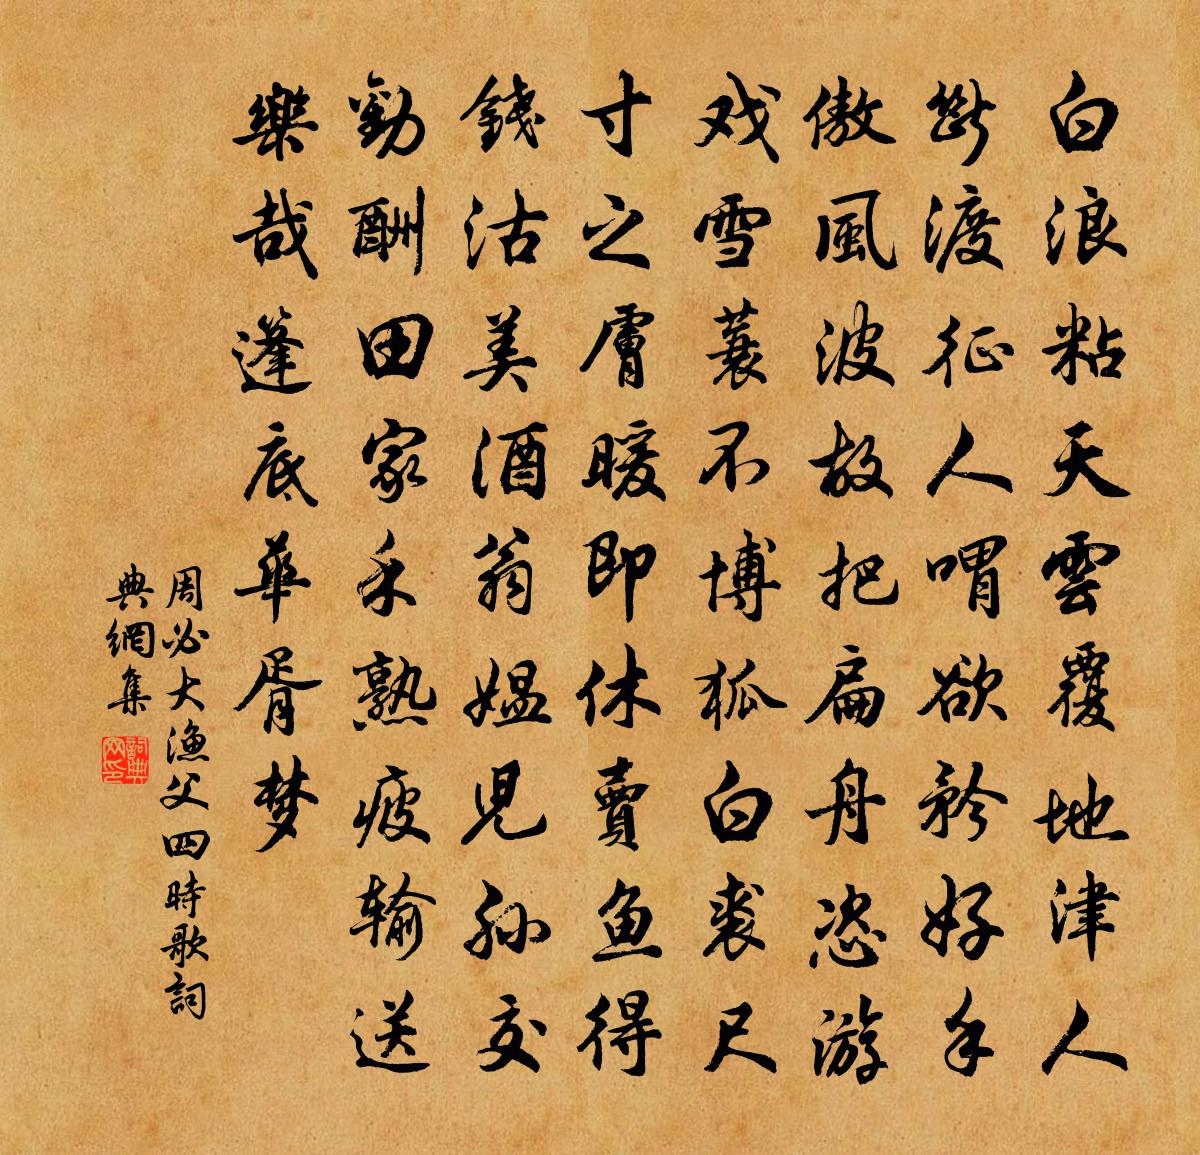 白浪粘天雲覆地津人
斷渡征人喟欲矜好手
傲風波故把扁舟恣游
戏雪蓑不博狐白裘尺
寸之膚暖即休賣鱼得
錢沽美酒翁媼児孙交
勸酬田家禾熟疲输送
樂哉篷底華胥梦
周必大漁父四時歌詞
典網集
詞典網印